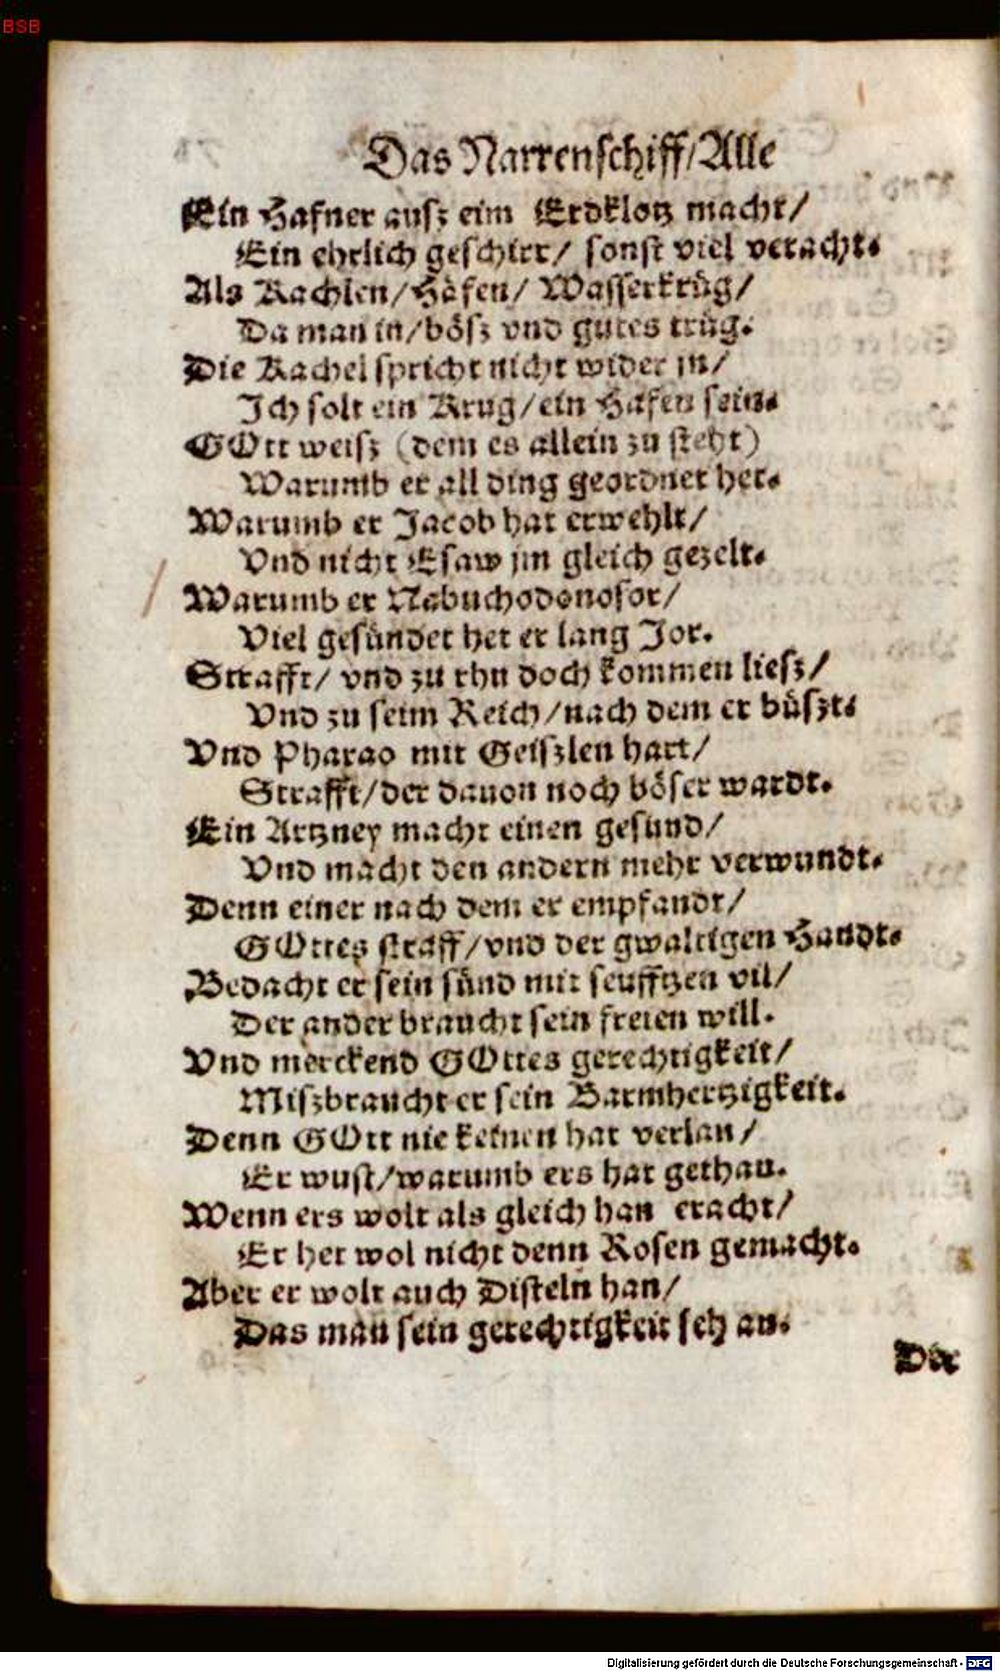 BSB
Das Narrenschiff/Alle
Ein Hafner ausz eim Erdklotz macht/
Ein ehrlich geschirr/ sonst viel veracht.
Als Kachlen/Häfen/ Wasserkrüg/
Da man in/bösz vnd gutes trüg.
Die Kachel spricht nicht wider jn/
Ich solt ein Krug/ein Hafen sein.
GOtt weisz (dem es allein zu steht)
Warumb er all ding geordnet het.
Warumb er Jacob hat erwehlt/
Vnd nicht Esaw jm gleich gezelt.
Warumb er Nabuchodonosor/
Viel gesündet het er lang Jor.
Strafft/ vnd zu rhu doch kommen liesz/
Vnd zu seim Reich/nach dem er büszt.
Vnd Pharao mit Geiszlen hart/
Strafft/der dauon noch böser wardt.
Ein Artzney macht einen gesund/
Vnd macht den andern mehr verwundt.
Denn einer nach dem er empfandt/
GOttes straff/vnd der gwaltigen Handt.
Bedacht er sein sünd mit seufftzen vil/
Der ander braucht sein freien will.
Vnd merckend GOttes gerechtigkeit/
Miszbraucht er sein Barmhertzigkeit.
Denn GOtt nie keinen hat verlan/
Er wust/warumb ers hat gethan.
Wenn ers wolt als gleich han eracht/
Er het wol nicht denn Rosen gemacht.
Aber er wolt auch Disteln han/
Das man sein gerechtigkeit seh an.
Der
Digitalisierung gefördert durch die Deutsche Forschungsgemeinschaft - DFG